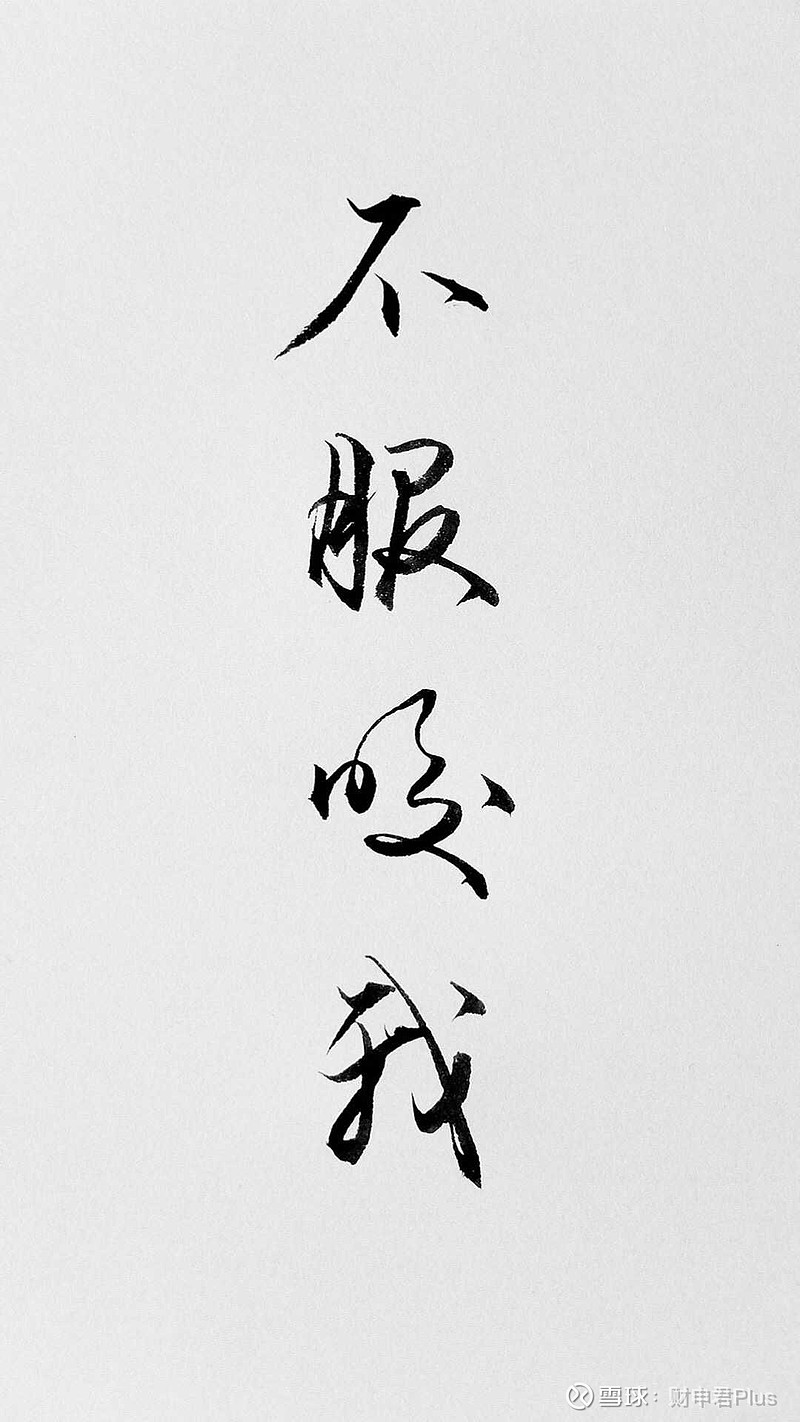 不服咬我
雪球：财申君Plus